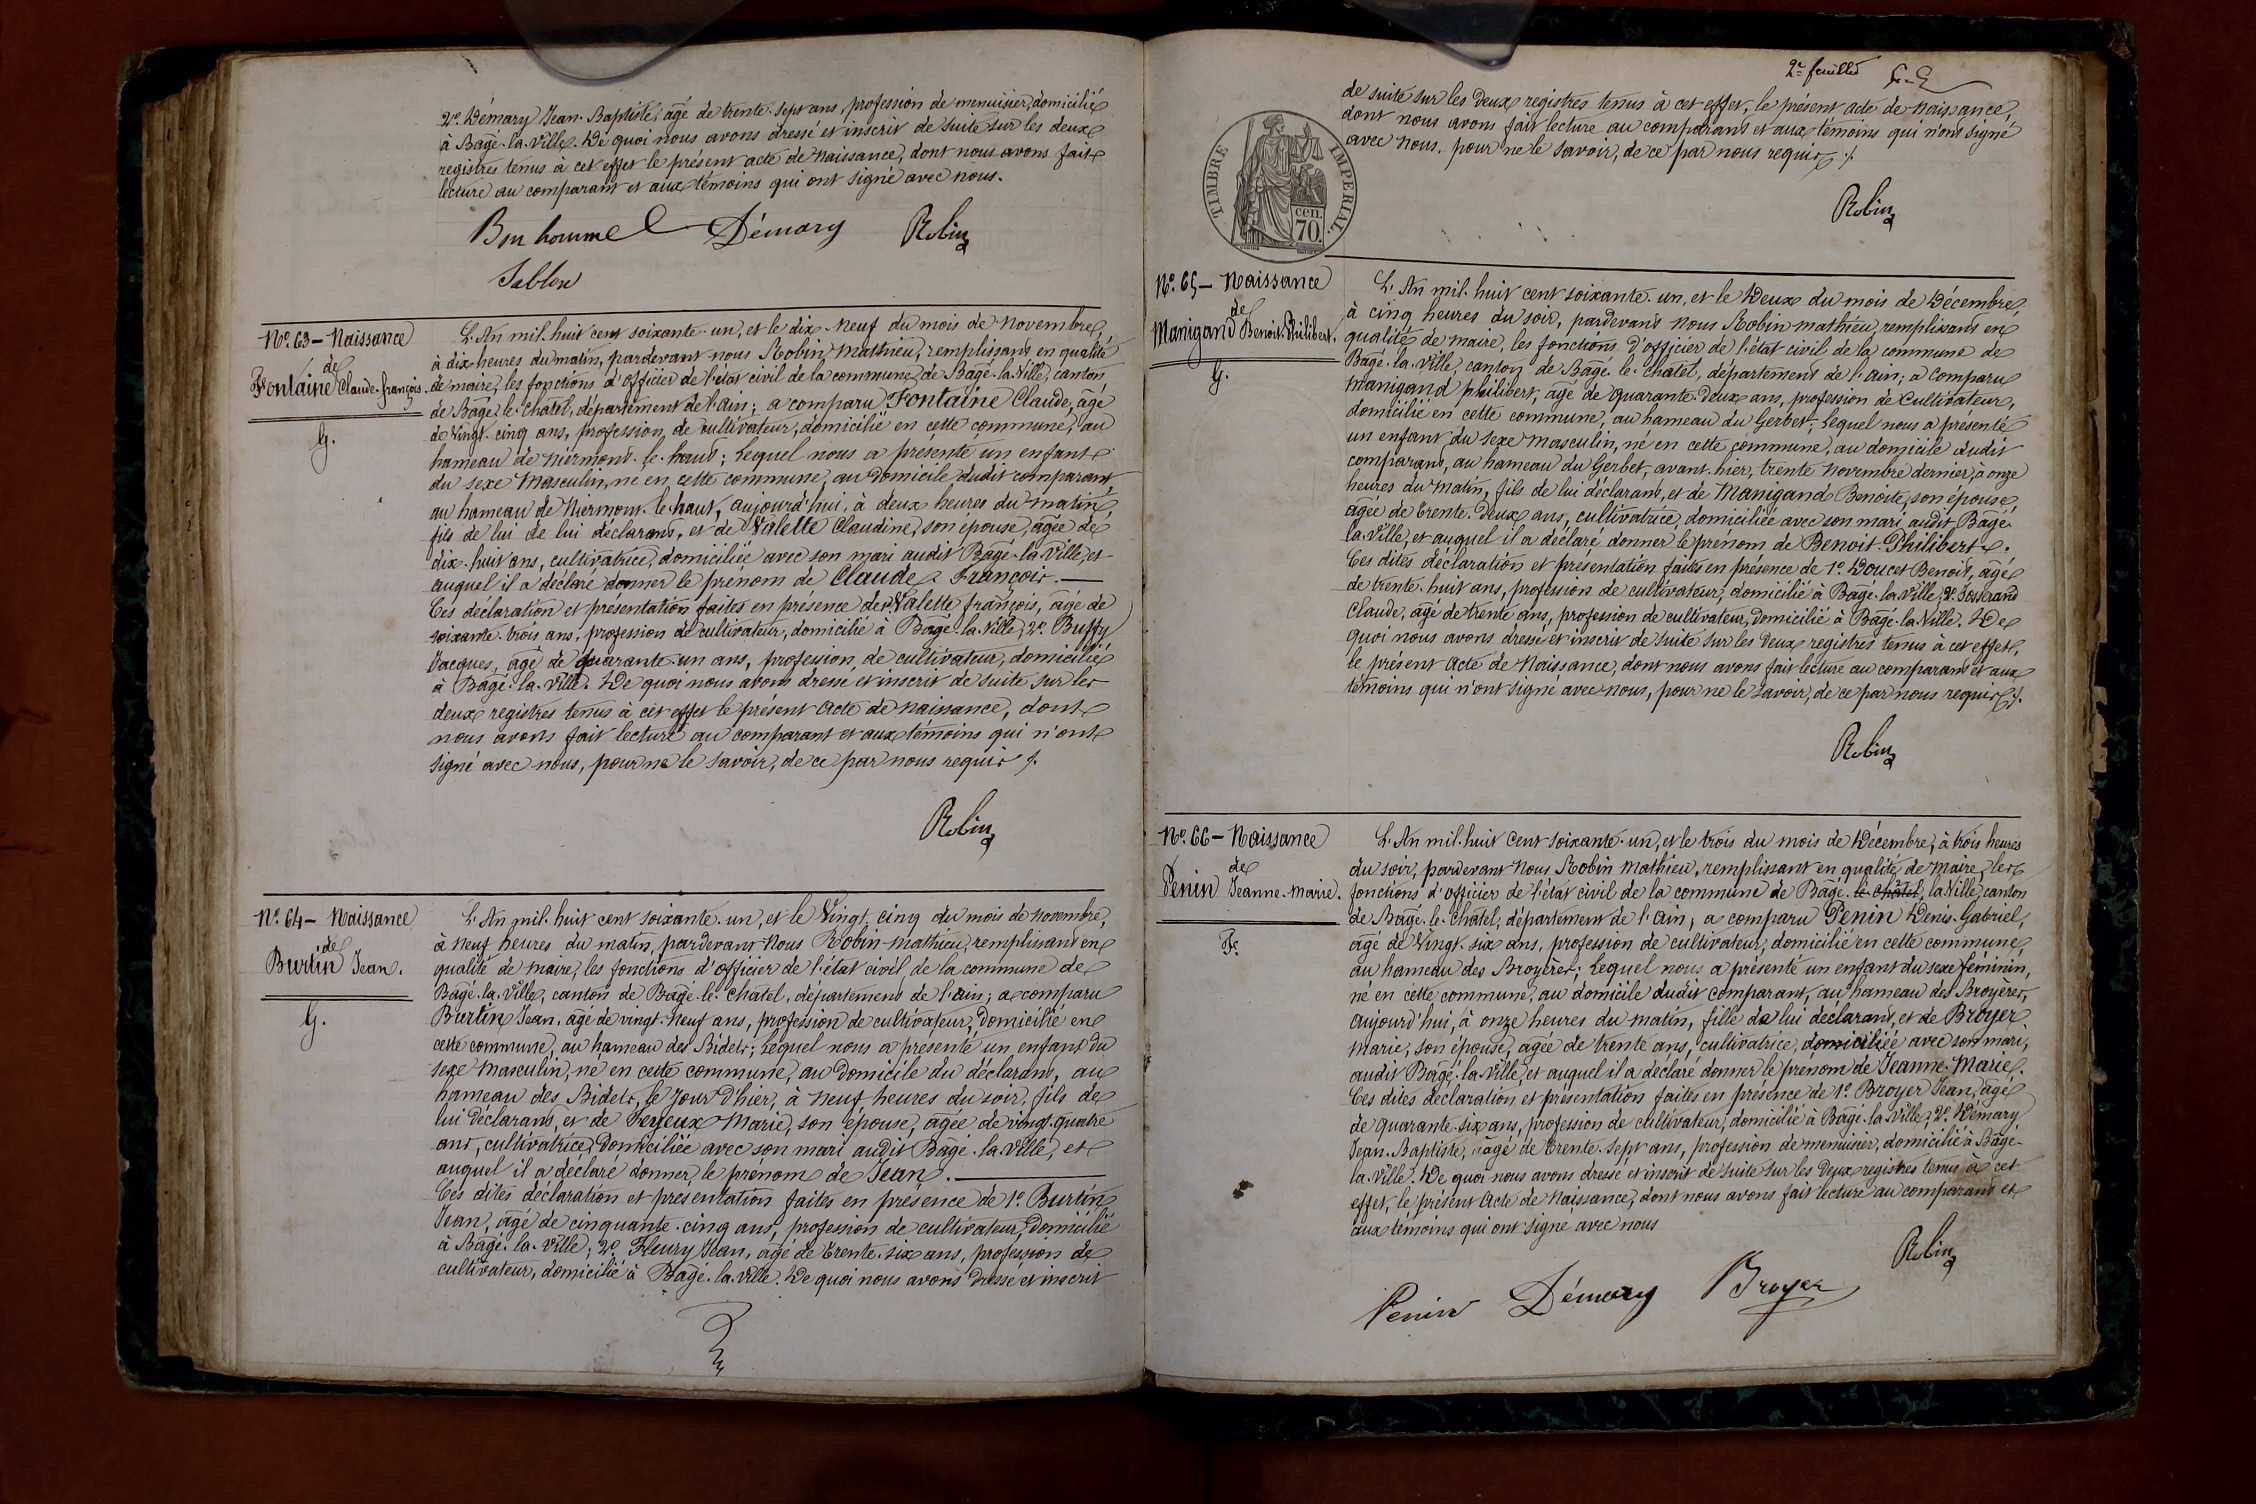 2º. Démary Jean-Baptiste, âgé de trente-sept ans, profession de menuisier, domicilié
à Bâgé-la-Ville. De quoi nous avons dressé et inscrit de suite sur les deux
registres tenus à cet effet le présent acte de Naissance, dont nous avons fait
lecture au comparant et aux témoins qui ont signé avec nous.
Bonhomme Démary Robin
Sablon
Nº. 63 – Naissance
de
Fontaine Claude-françois.
G.
L'An mil-huit cent soixante-un, et le dix-Neuf du mois de Novembre,
à dix-heures du matin, pardevant nous Robin Mathieu, remplissant en qualité
de maire, les fonctions d'officier de l'état civil de la commune, de Bâgé-la-Ville, canton
de Bâgé-le-Chatel, département de l'ain; a comparu Fontaine Claude, âgé
de vingt-cinq ans, profession de cultivateur, domicilié en cette commune, au
hameau de Niermont-le-haut; Lequel nous a présenté un enfant
du sexe Masculin, né en cette commune, au domicile dudit comparant,
au hameau de Niermont-le-haut, aujourd'hui, à deux heures du matin,
fils de lui de lui déclarant, et de Valette Claudine, son épouse, âgée de
dix-huit ans, cultivatrice, domiciliée avec son mari audit Bâgé-la-Ville, et
auquel il a déclaré donner le prénom de Claude François.
Ces déclaration et présentation faites en présence de 1º Valette françois, âgé de
soixante-trois ans, profession de cultivateur, domicilié à Bâgé-la-Ville, 2º. Buffy
Jacques, âgé de quarante-un ans, profession de cultivateur, domicilié
à Bâgé-la-Ville. De quoi nous avons dressé et inscrit de suite sur les
deux registres tenus à cet effet le présent Acte de naissance, dont
nous avons fait lecture au comparant et aux témoins qui n'ont
signé avec nous, pour ne le savoir, de ce par nous requis ./.
Robin
Nº. 64 – Naissance
de
Burtin Jean.
G.
L'An mil-huit cent soixante-un, et le Vingt-cinq du mois de novembre,
à Neuf heures du matin, pardevant Nous Robin Mathieu, remplissant en
qualité de maire, les fonctions d'officier de l'état civil de la commune de
Bâgé-la-Ville, canton de Bâgé-le-Chatel, département de l'ain; a comparu
Burtin Jean, âgé de vingt-Neuf ans, profession de cultivateur, domicilié en
cette commune, au hameau des Bidets; Lequel nous a présenté un enfant du
sexe Masculin, né en cette commune, au domicile du déclarant, au
hameau des Bidets, le Jour d'hier, à neuf heures du soir, fils de
lui déclarant, et de Feyeux Marie, son épouse, âgée de vingt-quatre
ans, cultivatrice, Domiciliée avec son mari audit Bâgé-la-Ville, et
auquel il a déclaré donner le prénom de Jean.
Ces dites déclaration et présentation faites en présence de 1º. Burtin
Jean, âgé de cinquante-cinq ans, profession de cultivateur, Domicilié
à Bâgé-la-Ville; 2º Fleury Jean, âgé de trente-six ans, profession de
cultivateur, domicilié à Bâgé-la-Ville. De quoi nous avons dressé et inscrit
2e feuille
de suite sur les deux registres tenus à cet effet, le présent acte de Naissance,
dont nous avons fait lecture au comparant et aux témoins qui n'ont signé
avec nous, pour ne le savoir, de ce par nous requis ./.
TIMBRE IMPERIAL.
cen.
70.
Robin
Nº. 65 – Naissance
de
Manigand Benoit-Philibert.
G.
L'An mil-huit cent soixante-un, et le Deux du mois de Décembre,
à cinq heures du soir, pardevant Nous Robin mathieu, remplissant en
qualité de maire, les fonctions d'officier de l'état civil de la commune de
Bâgé-la-Ville, canton de Bâgé-le-Chatel, département de l'ain; a Comparu
Manigand philibert, âgé de Quarante-Deux ans, profession de Cultivateur,
domicilié en cette commune, au hameau du Gerbet; Lequel nous a présenté
un enfant du sexe Masculin, né en cette commune, au domicile dudit
comparant, au hameau du Gerbet, avant-hier, trente Novembre dernier, à onze
heures du matin, fils de lui déclarant, et de Manigand Benoite, son épouse,
âgée de trente-Deux ans, cultivatrice, domiciliée avec son mari audit Bâgé-
la-Ville, et auquel il a déclaré donner le prénom de Benoit-Philibert.
Ces dites déclaration et présentation faites en présence de 1º. Doucet Benoit, âgé
de trente-huit ans, profession de cultivateur, domicilié à Bâgé-la-Ville, 2º. Josserand
Claude, âgé de trente ans, profession de cultivateur, Domicilié à Bâgé-la-Ville. De
quoi nous avons dressé et inscrit de suite sur les deux registres tenus à cet effet,
le présent Acte de Naissance, dont nous avons fait lecture au comparant et aux
témoins qui n'ont signé avec nous, pour ne le savoir, de ce par nous requis ./.
Robin
Nº. 66 – Naissance
de
Penin Jeanne-Marie.
F.
L'An mil-huit Cent soixante-un, et le trois du mois de Décembre, à trois heures
du soir, pardevant Nous Robin Mathieu, remplissant en qualité de Maire, les
fonctions d'officier de l'état civil de la commune de Bâgé-le-Châtel, la Ville, canton
de Bâgé-le-Chatel, département de l'ain; a comparu Penin Denis-Gabriel,
âgé de Vingt-six ans, profession de cultivateur, domicilié en cette commune,
au hameau des Broyères; Lequel nous a présenté un enfant du sexe féminin,
né en cette commune, au domicile dudit comparant, au hameau des Broyères,
aujourd'hui, à onze heures du matin, fille de lui déclarant, et de Broyer
Marie, son épouse, âgée de trente ans, cultivatrice, domiciliée avec son mari,
audit Bâgé-la-Ville, et auquel il a déclaré donner le prénom de Jeanne-Marie.
Ces dites déclaration et présentation faites en présence de 1º. Broyer Jean, âgé
de quarante-six ans, profession de cultivateur, domicilié à Bâgé-la-Ville; 2º. Démary
Jean-Baptiste, âgé de trente-sept ans, profession de menuisier, domicilié à Bâgé-
la-Ville. De quoi nous avons dressé et inscrit de suite sur les Deux registres tenus à cet
effet, le présent Acte de Naissance, dont nous avons fait lecture au comparant et
aux témoins qui ont signé avec nous
Robin
Penin Démary Broyer